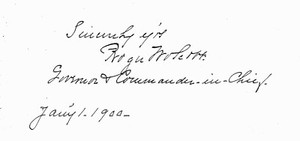 Sincerely y'rs
Roger Wolcott.
Governor & Commander-in-Chief.
Jan'y 1. 1900—